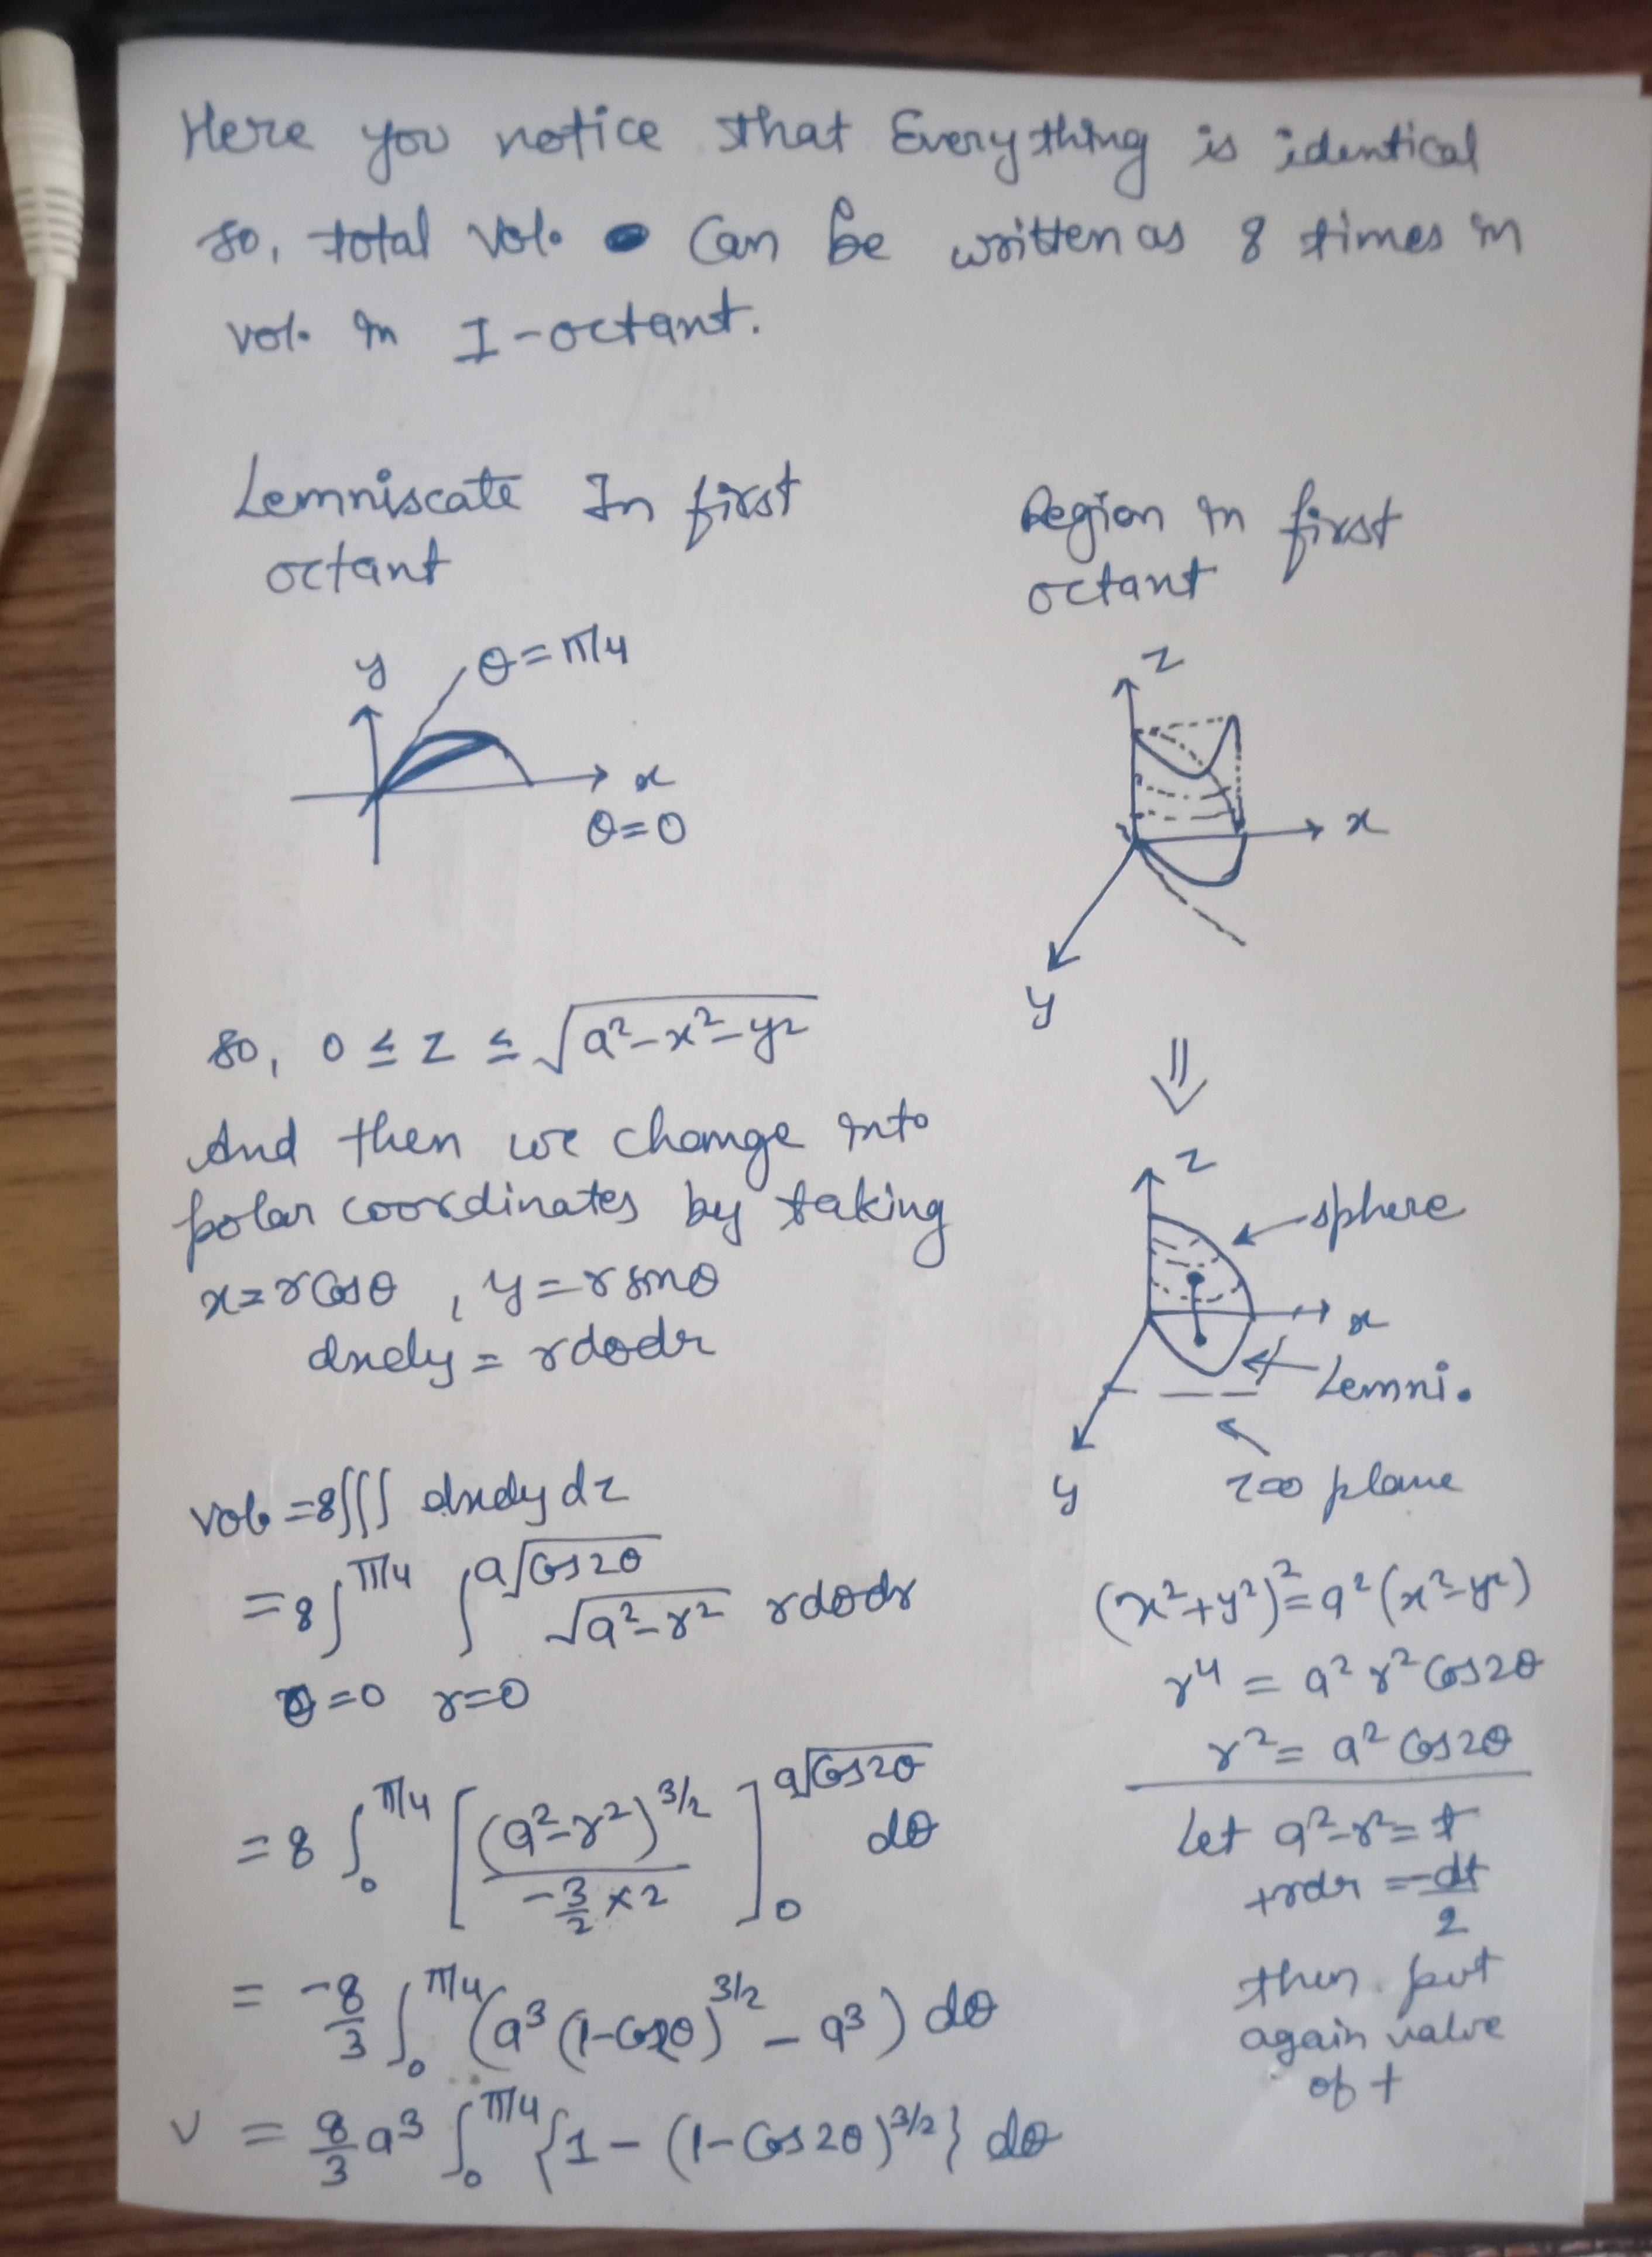 Here you notice that Everything is identical
so, total vol. Can be written as 8 times in
vol. in I-octant.
Lemniscate In first
octant
Region in first
octant
y
θ=π/4
x
θ=0
z
x
y
so, 0 ≤ z ≤ √(a²-x²-y²)
⇓
And then we change into
polar coordinates by taking
x=rcosθ , y=rsinθ
dxdy = rdθdr
z
sphere
x
Lemni.
y
z=0 plane
vol. =8∫∫∫ dxdydz
=8∫_{θ=0}^{π/4} ∫_{r=0}^{a√cos2θ} √(a²-r²) rdθdr
=8 ∫_0^{π/4} [(a²-r²)^{3/2} / (-3/2 × 2)]_0^{a√cos2θ} dθ
= -8/3 ∫_0^{π/4} (a³(1-cos2θ)^{3/2} - a³) dθ
V = 8/3 a³ ∫_0^{π/4} {1-(1-cos2θ)^{3/2}} dθ
(x²+y²)²=a²(x²-y²)
r⁴ = a² r² cos2θ
r² = a² cos2θ
Let a²-r²= t
+rdr = -dt/2
then put
again value
of t